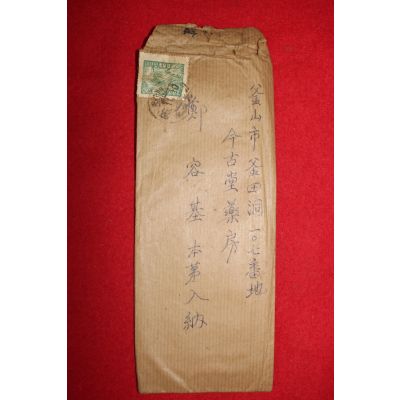 釜山市釜田洞一〇七番地
今古堂藥房
鄭容基本第入納